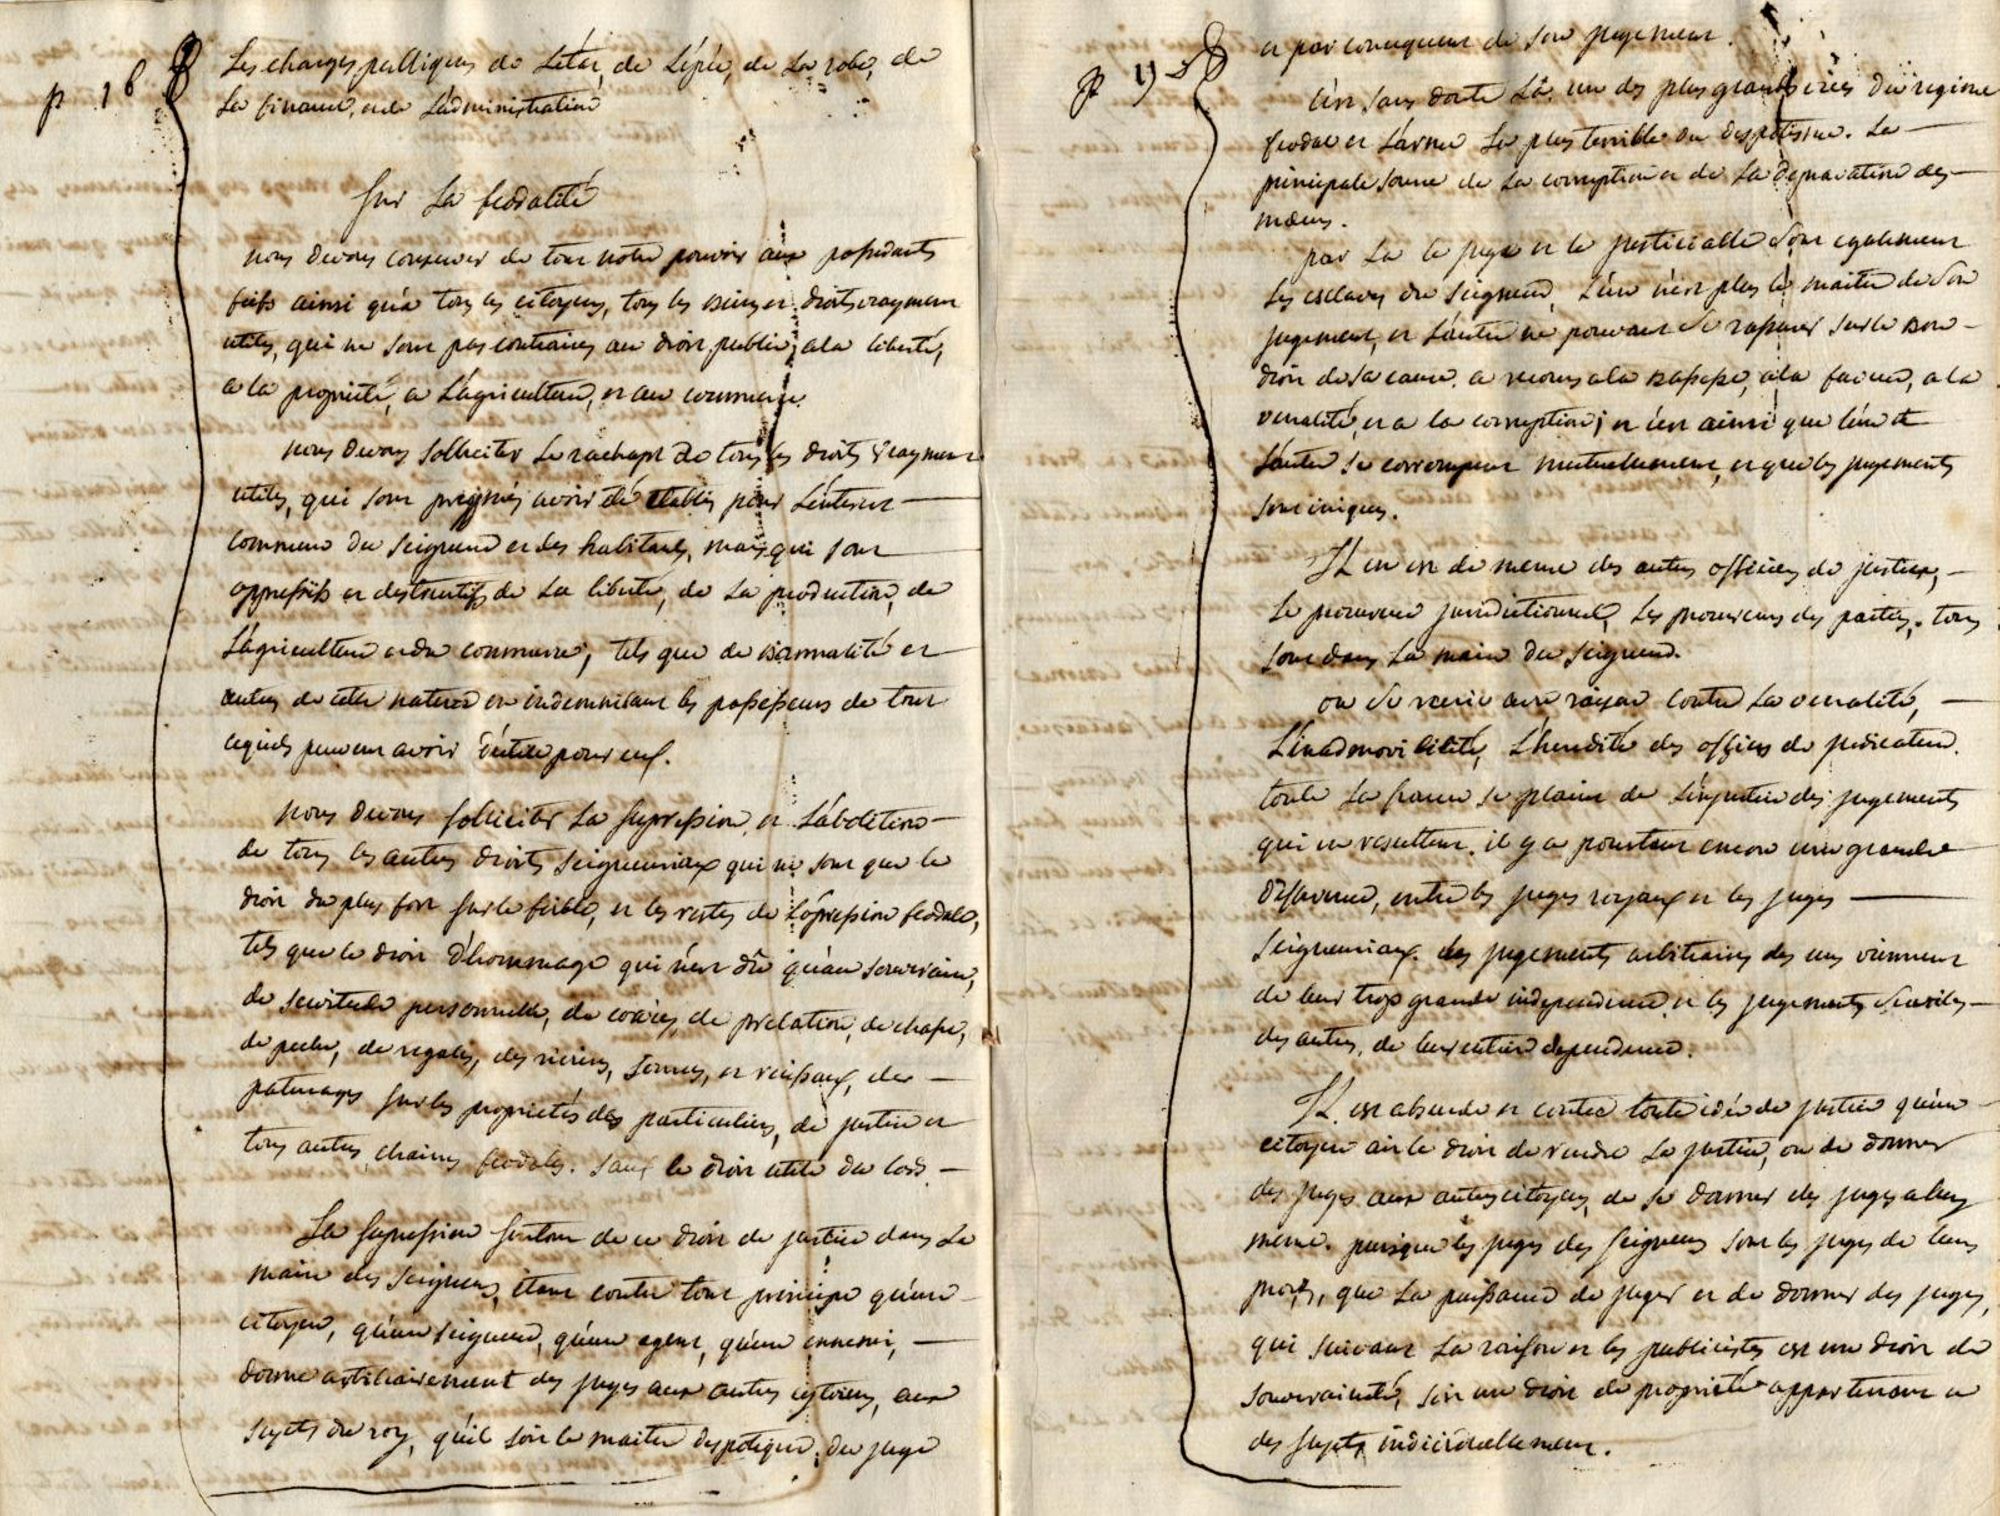 p 18
Les charges publiques de L'état, de L'épée, de La robe, de
La finance, et de L'administration
Sur La feodalité
nous devons conserver de tout notre pouvoir aux possedants
fiefs ainsi qu'a tous les citoyens, tous les biens et droits vrayment
utiles, qui ne sont pas contraires au droit public, a la liberté,
a la proprieté, a L'agriculture, et au commerce.
nous devons solliciter Le rachapt de tous les droits vrayment
utiles, qui sont presumés avoir été établis pour L'interest
commun du seigneur et des habitants, mais qui sont
oppressifs et destructifs de La liberté, de La production, de
L'agriculture et du commerce, tels que de bannalité et
autres de cette nature en indemnisant les possesseurs de tout
ce qu'ils peuvent avoir d'utile pour eux.
nous devons solliciter La supression, et L'abolition
de tous les autres droits seigneuriaux qui ne sont que le
droit du plus fort sur le foible, et les restes de L'opression feodale,
tels que le droit d'hommage qui n'est dû qu'au souverain,
de servitude personnelle, de corvées, de prelation, de chasse,
de peche, de regales, des rivieres, sources, et ruisseaux, des
paturages sur les proprietés des particuliers, de justice et
tous autres chaines feodales. sauf le droit utile du lods.
La supression surtout de ce droit de justice dans La
main des seigneurs, étant contre tout principe qu'un
citoyen, qu'un seigneur, qu'un agent, qu'un ennemi,
donne arbitrairement des juges aux autres citoiens, aux
sujets du roy, qu'il soit le maitre despotique du juge
p 19
et par consequent de son jugement.
C'est sans doute Là un des plus grands vices du regime
feodal et L'arme La plus terrible du despotisme. La
principale source de La corruption et de La depravation des
mœurs.
par La le juge et le justiciable sont egalement
Les esclaves du seigneur, L'un n'est plus le maitre de son
jugement, et L'autre ne pouvant se rassurer sur le bon
droit de sa cause, a recours a la bassesse, a la faveur, a la
venalité, et a la corruption; et c'est ainsi que L'un et
L'autre se corrompent mutuellement, et que les jugements
sont iniques.
Il en est de meme des autres officiers de justice,
Le procureur jurisdictionnel, Les procureurs des parties, tous
sont dans La main du seigneur.
on se recrie avec raison contre La venalité,
L'inadmovibilité, L'heredité des offices de judicature.
toute La france se plaint de L'injustice des jugements
qui en resultent. il y a pourtant encore une grande
difference, entre les juges royaux et les juges
seigneuriaux. les jugements arbitraires des uns viennent
de leur trop grande independance, et les jugements serviles
des autres, de leur entiere dependance.
Il est absurde et contre toute idée de justice qu'un
citoyen ait le droit de rendre La justice, ou de donner
des juges aux autres citoyens, de se donner des juges a luy
meme. puisque les juges des seigneurs sont les juges de leurs
procès, que La puissance de juger et de donner des juges,
qui suivant La raison et les publicistes est un droit de
souveraineté, soit un droit de proprieté appartenant a
des sujets individuellement.